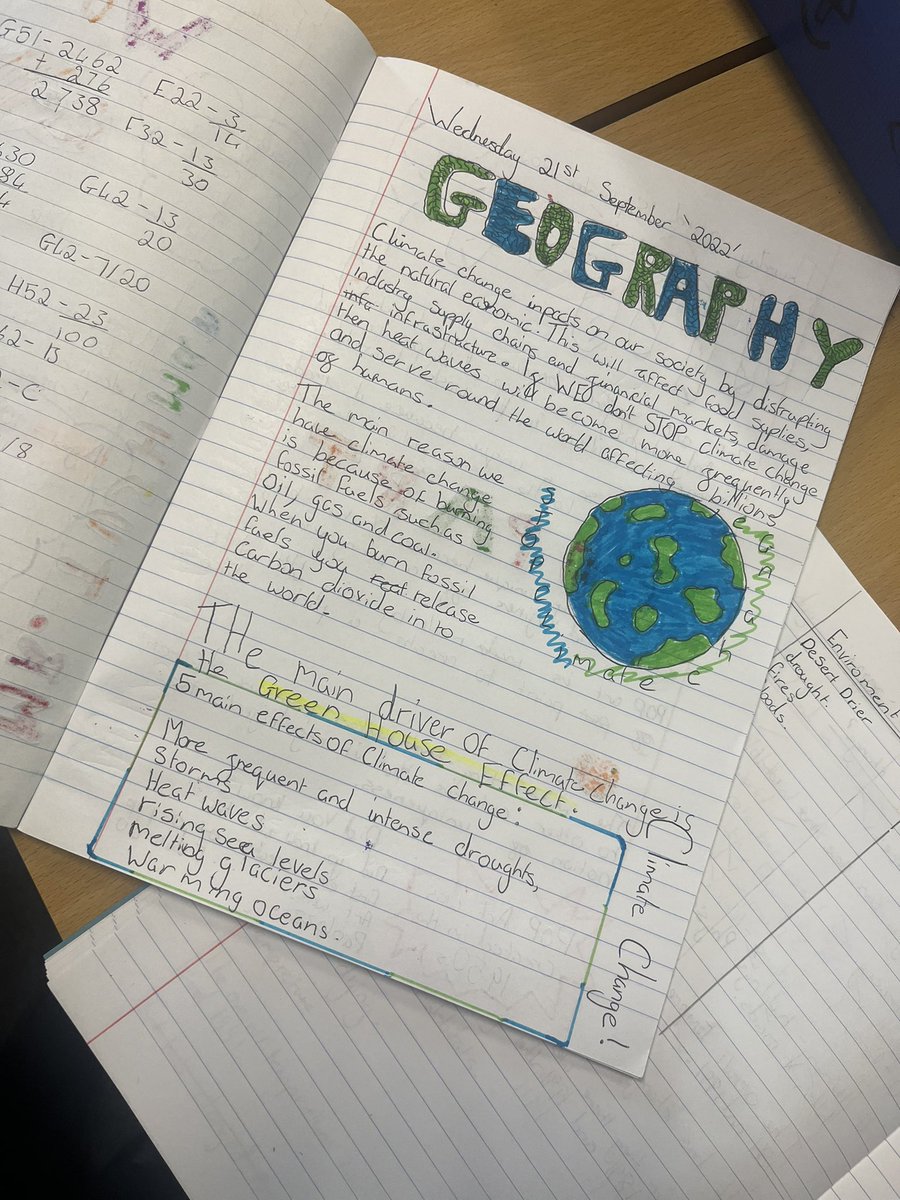 G51-2462
+ 276
2738
E22-3
14
F32-13
30
G42-13
20
G42-7/20
H52-23
100
Wednesday 21st September '2022'
GEOGRAPHY
Climate change impacts on our society by distrupting
the natural economic. This will affect food supplies,
industry supply chains and financial markets, damage
infrastructure. If WE don't STOP climate change
then heat waves will become more frequently
and serve round the world affecting billions
of humans.
The main reason we
have climate change
is because of burning
fossil fuels. such as
Oil, gas and coal.
When you burn fossil
fuels you release
Carbon dioxide in to
the world.
Climate change
THe main driver of Climate change is
He Green House Effect.
5 main effects of Climate change:
More frequent and intense droughts,
Storms
Heat waves
rising sea levels
melting glaciers
Warming oceans.
Climate Change!
Enviroment
Desert Drier
drought.
fires
floods.